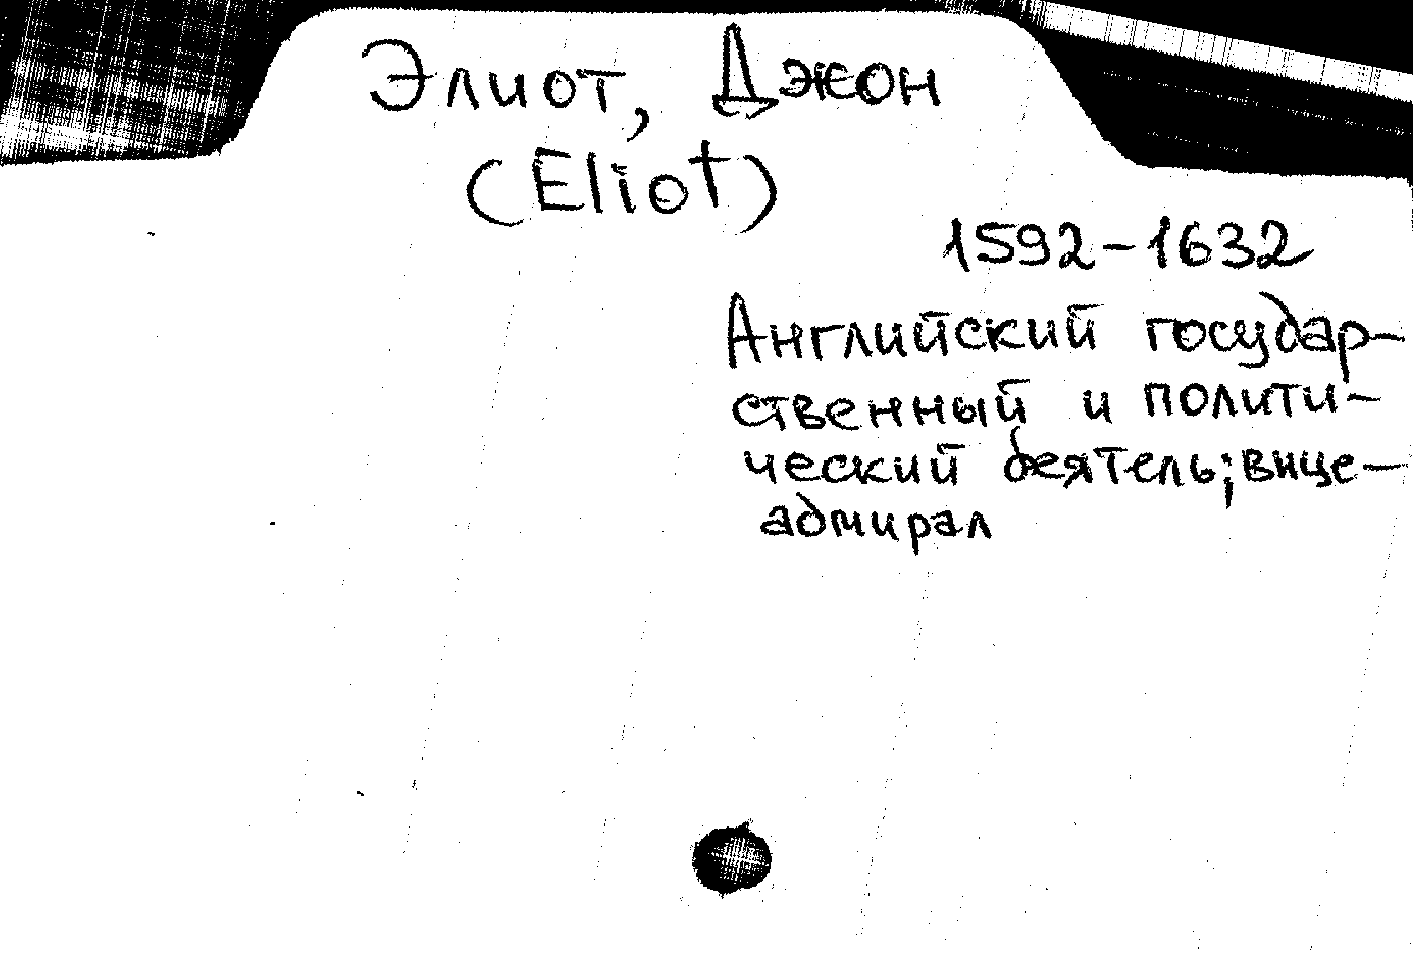 Элиот, Джон
(Eliot)
1592-1632
Английский государ-
ственный и полити-
ческий деятель; вице-
адмирал